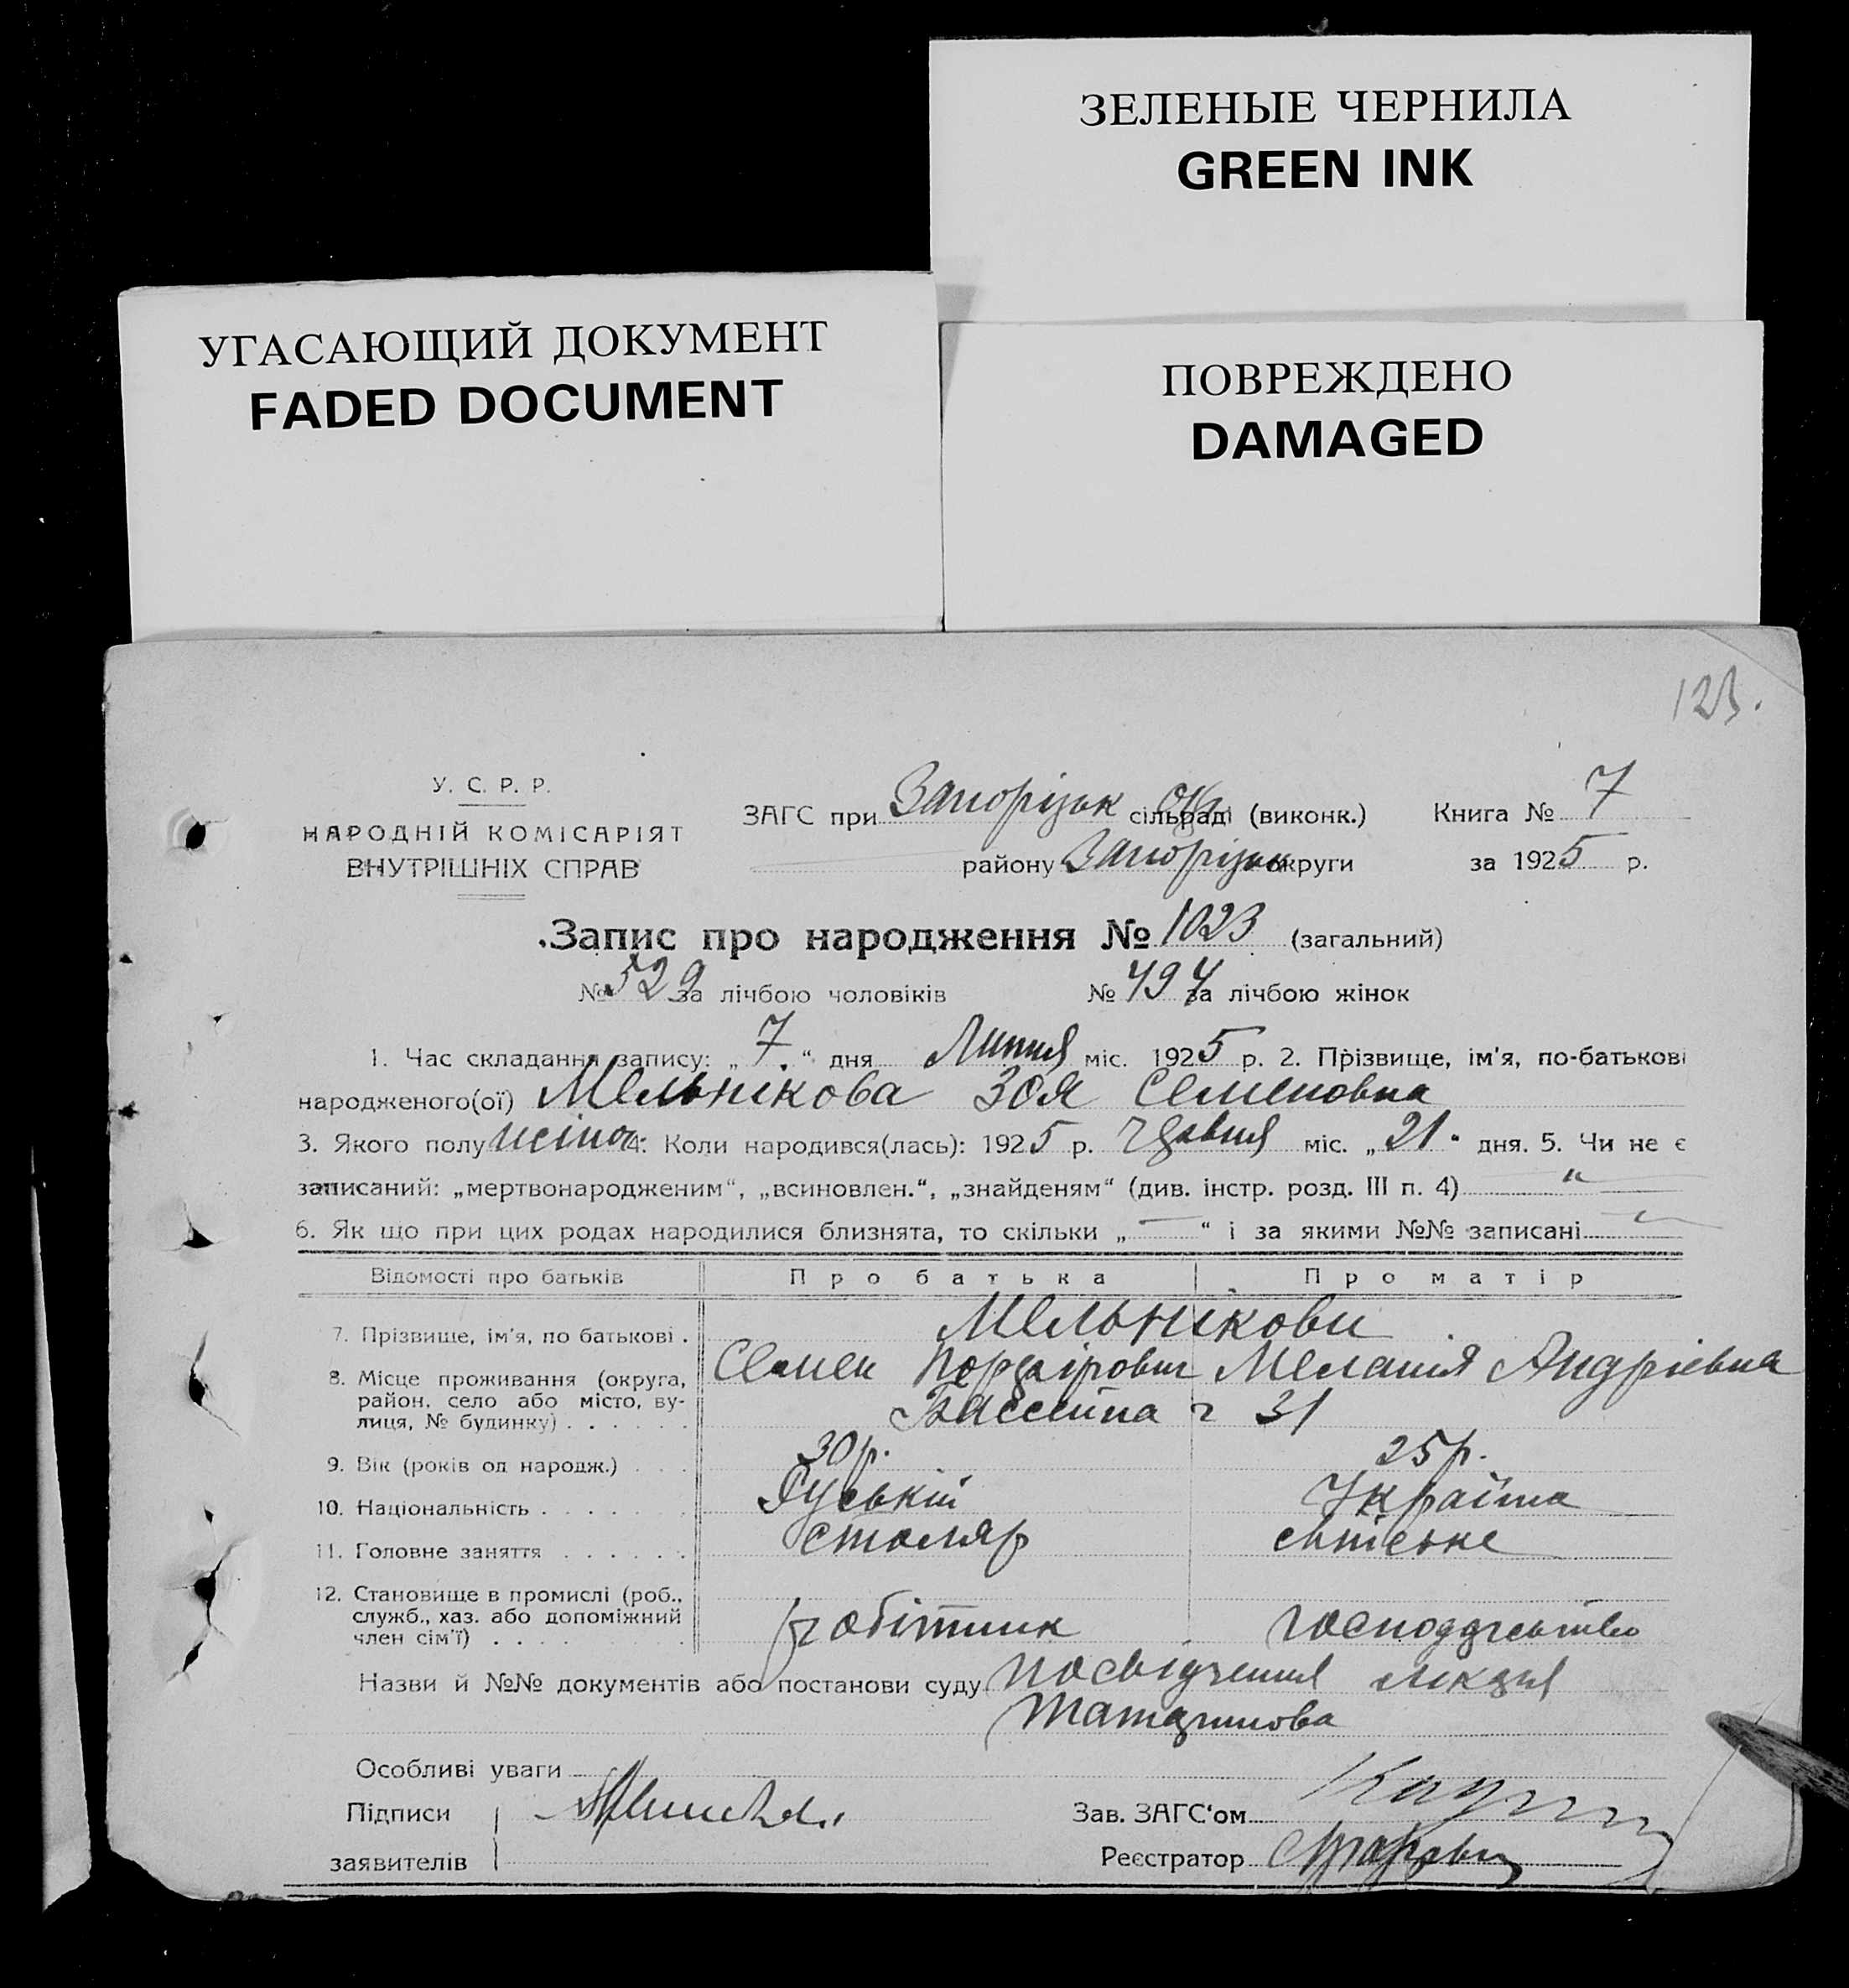 ЗЕЛЕНЫЕ ЧЕРНИЛА
GREEN INK
УГАСАЮЩИЙ ДОКУМЕНТ
FADED DOCUMENT
ПОВРЕЖДЕНО
DAMAGED
123.
У. С. Р. Р.
НАРОДНІЙ КОМІСАРІЯТ
ВНУТРІШНІХ СПРАВ
ЗАГС при Запорізьк окр. сільраді (виконк.) Книга № 7
району Запорізьк округи за 1925 р.
Запис про народження № 1023 (загальний)
№ 529 за лічбою чоловіків № 494 за лічбою жінок
1. Час складання запису: „7“ дня Липня міс. 1925 р. 2. Прізвище, ім'я, по-батькові
народженого(ої) Мельнікова Зоя Семеновна
3. Якого полу жіноч. 4. Коли народився(лась): 1925 р. Червня міс. „21“ дня. 5. Чи не є
записаний: „мертвонародженим“, „всиновлен.“, „знайденям“ (див. інстр. розд. III п. 4) — " —
6. Як що при цих родах народилися близнята, то скільки „—“ і за якими №№ записані
Відомості про батьків Про батька Про матір
7. Прізвище, ім'я, по батькові . Мельнікови
Семен Порфірович Меланія Андріевна
8. Місце проживання (округа,
район, село або місто, ву-
лиця, № будинку) . . . . . . Бассейна ч 31
9. Вік (років од народж.) . . . 30 р. 25 р.
10. Національність . . . . . . . Руській Україна
11. Головне заняття . . . . . . столяр хатнеське
12. Становище в промислі (роб.,
служб., хаз. або допоміжний
член сім'ї) . . . . робітник господарство
Назви й №№ документів або постанови суду посвідчення лікаря
Особливі уваги
Підписи
заявителів
Зав. ЗАГС'ом
Реєстратор